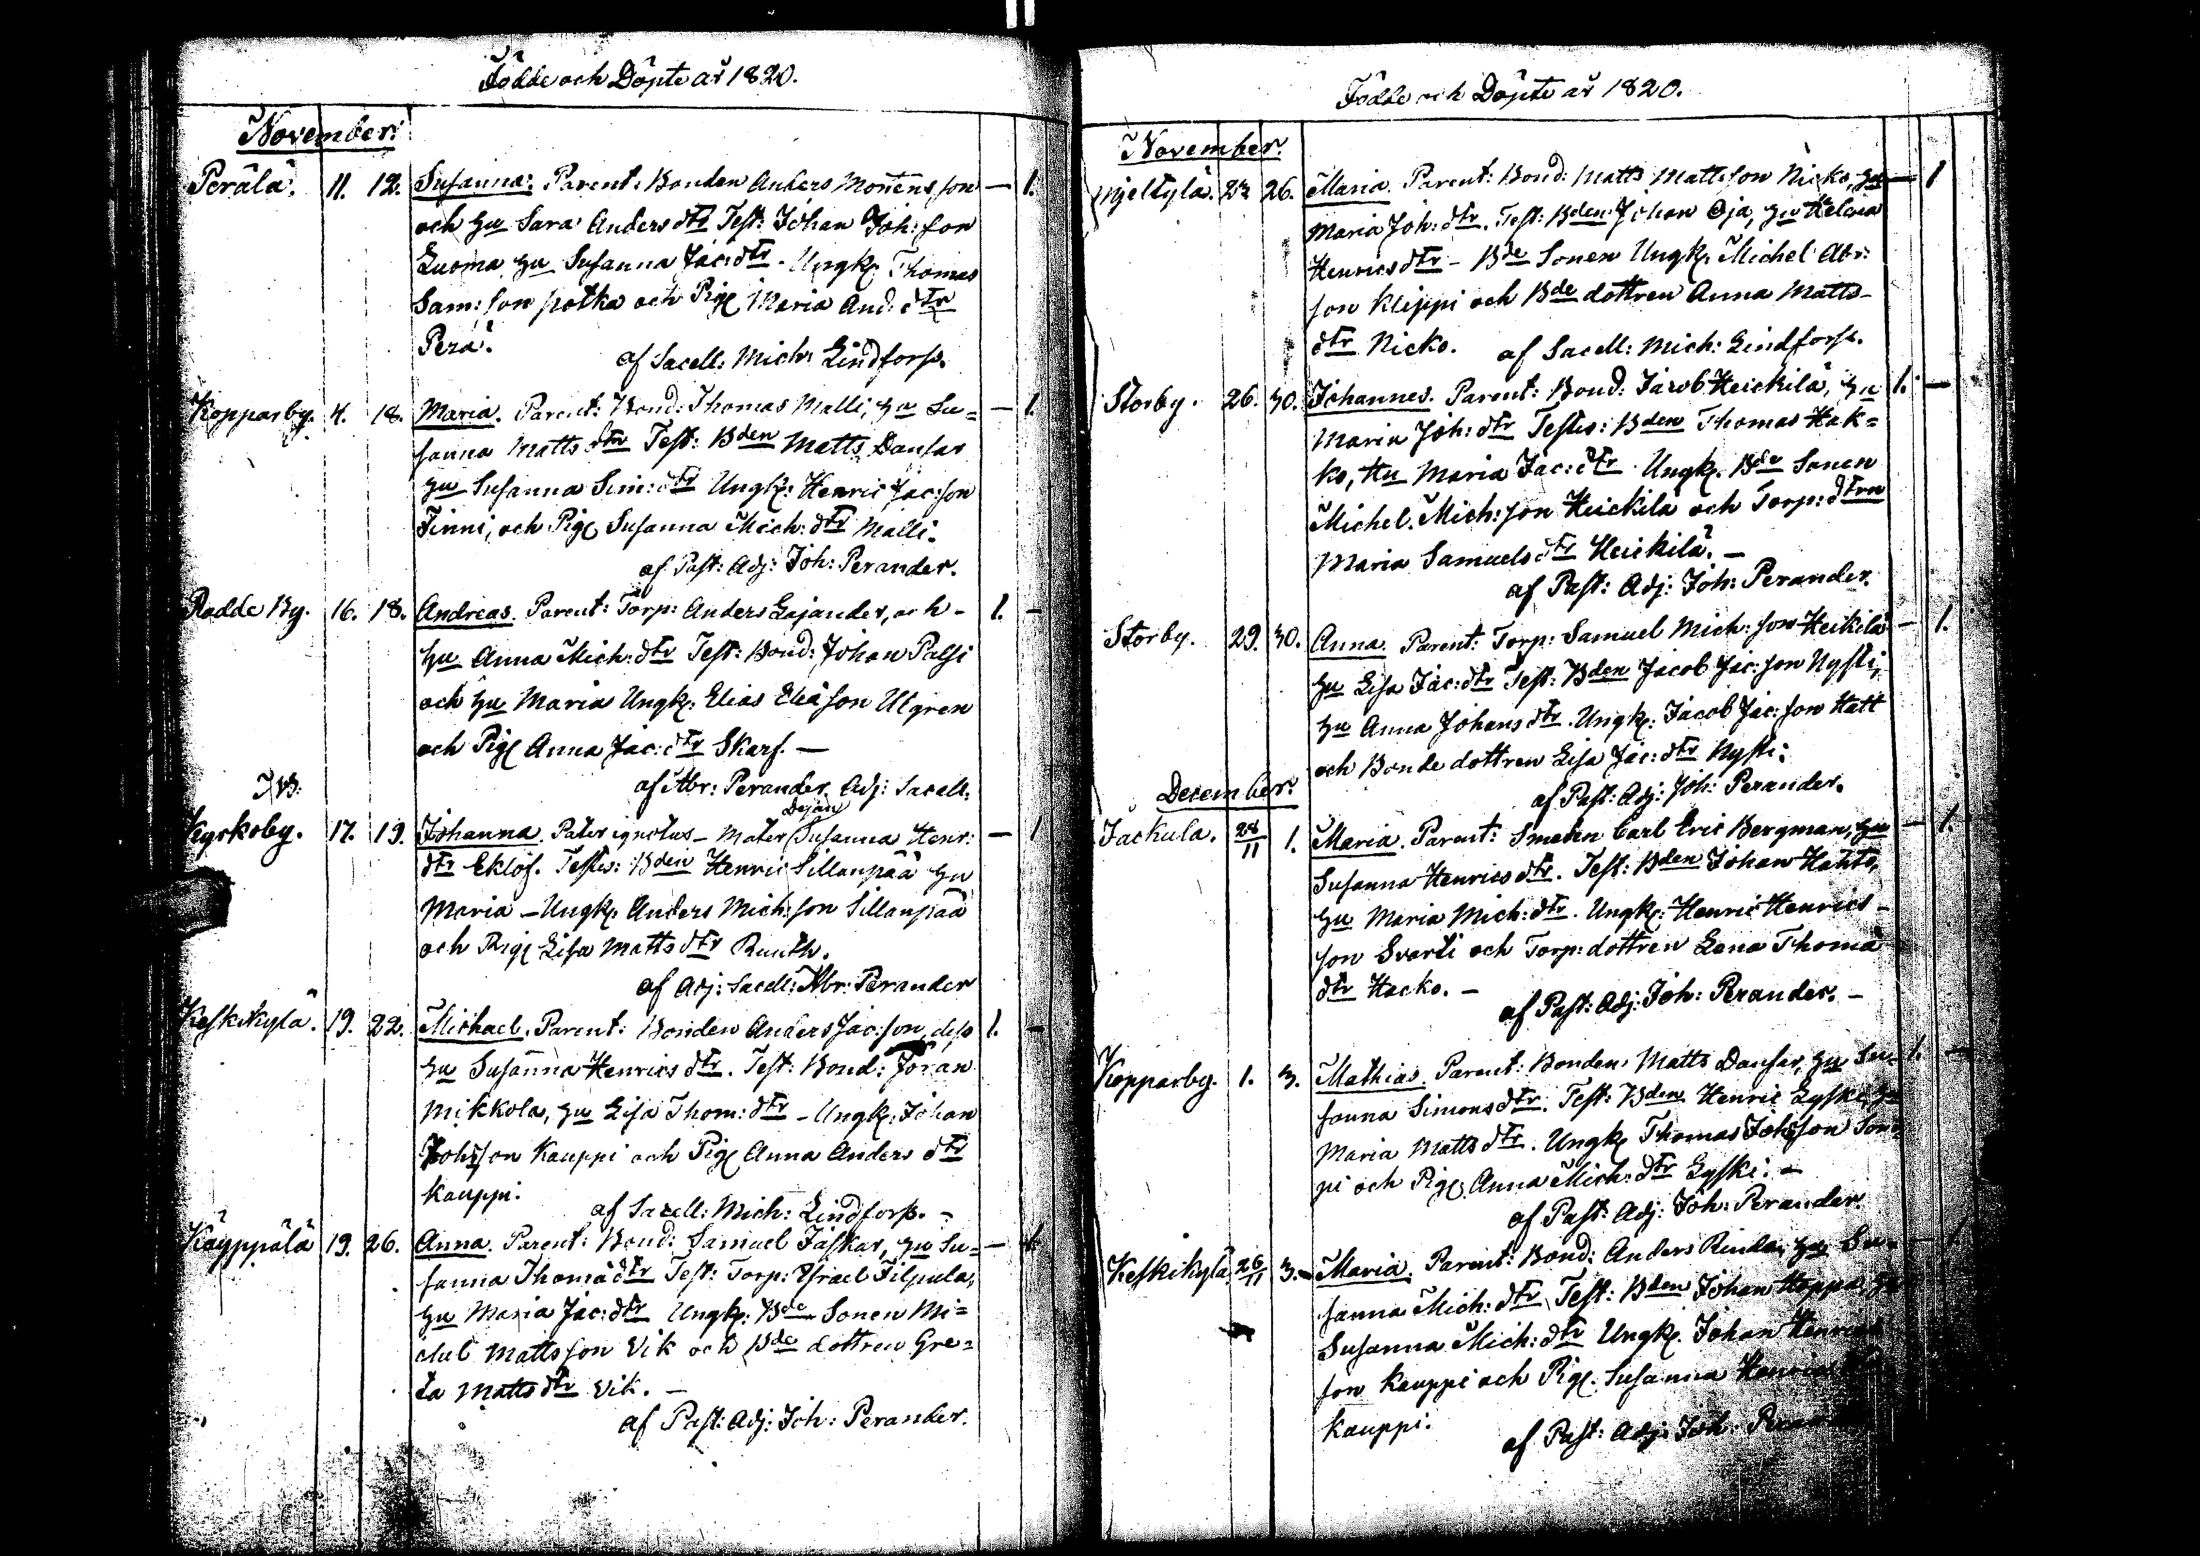 Födde och Döpte år 1820.
November:
Perälä. 11. 12. Susanna: Parent: Bonden Anders Mortens son — 1.
och Hu Sara Anders dtr Test: Johan Joh: son
Luoma, Hu Susanna Jac: dtr. Ungk: Thomas
Sam: son potka och Pig: Maria And: dtr
Perä.
af Sacell: Mich: Lindforss.
Kopparby. 4. 18. Maria. Parent: Bond: Thomas Malli, Hu Su= — 1.
sanna Matts dtr Test: Bden Matts Dansar
Hu Susanna Sim: dtr Ungk: Henric Jac: son
Finni, och Pig: Susanna Mich: dtr Malli.
af Past: Adj: Joh: Perander.
Radde By. 16. 18. Andreas. Parent: Torp: Anders Lajander, och — 1. —
Hu Anna Mich: dtr Test: Bond: Johan Palsi
och Hu Maria Ungk: Elias Eliæ son Ulgren
och Pig: Anna Jac: dtr Skarf. —
af Abr: Perander Adj: Sacell:
Kyrkoby. 17. 19. Johanna. Pater ignotus — Mater (Susanna Henr: — 1
dtr Eklöf. Testes: Bden Henric Sillanpää Hu
Maria — Ungk: Anders Mich: son Sillanpää
och Pig: Lisa Matts dtr Ruuth.
af Adj: Sacell: Abr: Perander
Keskikylä. 19. 22. Michael. Parent: Bonden Anders Jac: son, dess 1. —
Hu Susanna Henrics dtr. Test: Bond: Jöran
Mikkola, Hu Lisa Thom: dtr — Ungk: Johan
Johsson Kauppi och Pig: Anna Anders dtr
Kauppi.
af Sacell: Mich: Lindforss. —
Käyppälä 19. 26. Anna. Parent: Bond: Samuel Jaskar, Hu Su= — 1.
sanna Thomæ dtr Test: Torp: Israel Filpula,
Hu Maria Jac: dtr Ungk: Bde Sonen Mi=
chel Matts son Vik och Bde dottren Gre=
ta Matts dtr Vik. —
af Past: Adj: Joh: Perander.
Födde och Döpte år 1820.
November.
Mjeltylä. 23 26. Maria. Parent: Bond: Matts Matts son Nicko, Hu — 1
Maria Joh: dtr. Test: Bden Johan Oja, Hu Helena
Henrics dtr — Bde Sonen Ungk: Michel Abr:
son Klippi och Bde dottren Anna Matts—
dtr Nicko. af Sacell: Mich: Lindforss.
Storby. 26. 30. Johannes. Parent: Bond: Jacob Heickilä, Hu 1. —
Maria Joh: dtr Testes: Bden Thomas Hak=
ko, Hu Maria Jac: dtr. Ungk: Bde Sonen
Michel Mich: son Heickilä och Torp: dtrn
Maria Samuels dtr Heickilä. —
af Past: Adj: Joh: Perander.
Storby. 29. 30. Anna. Parent: Torp: Samuel Mich: son Heikilä — 1.
Hu Lisa Jac: dtr Test: Bden Jacob Jac: son Nysti,
Hu Anna Johans dtr. Ungk: Jacob Jac: son Hatt
och Bonde dottren Lisa Jac: dtr Nysti.
af Past: Adj: Joh: Perander.
December:
Jackula. 28/11 1. Maria. Parent: Smeden Carl Eric Bergman, Hu — 1.
Susanna Henrics dtr. Test: Bden Johan Hahto,
Hu Maria Mich: dtr. Ungk: Henric Henrics—
son Svarti och Torp: dottren Lena Thomæ
dtr Hacko. —
af Past: Adj: Joh: Perander. —
Kopparby. 1. 3. Mathias. Parent: Bonden Matts Dansar, Hu Su— 1. —
sanna Simons dtr. Test: Bden Henric Lyski, Hu
Maria Matts dtr. Ungk: Thomas Johsson
pi och Pig: Anna Mich: dtr Lyski. —
af Past: Adj: Joh: Perander.
Keskikylä 26/11 3. Maria. Parent: Bond: Anders Rinda, Hu Su= — 1.
sanna Mich: dtr Test: Bden Johan Hoppa, Hu
Susanna Mich: dtr Ungk: Johan Henrics
son Kauppi och Pig: Susanna Henrics
Kauppi.
af Past: Adj: Joh: